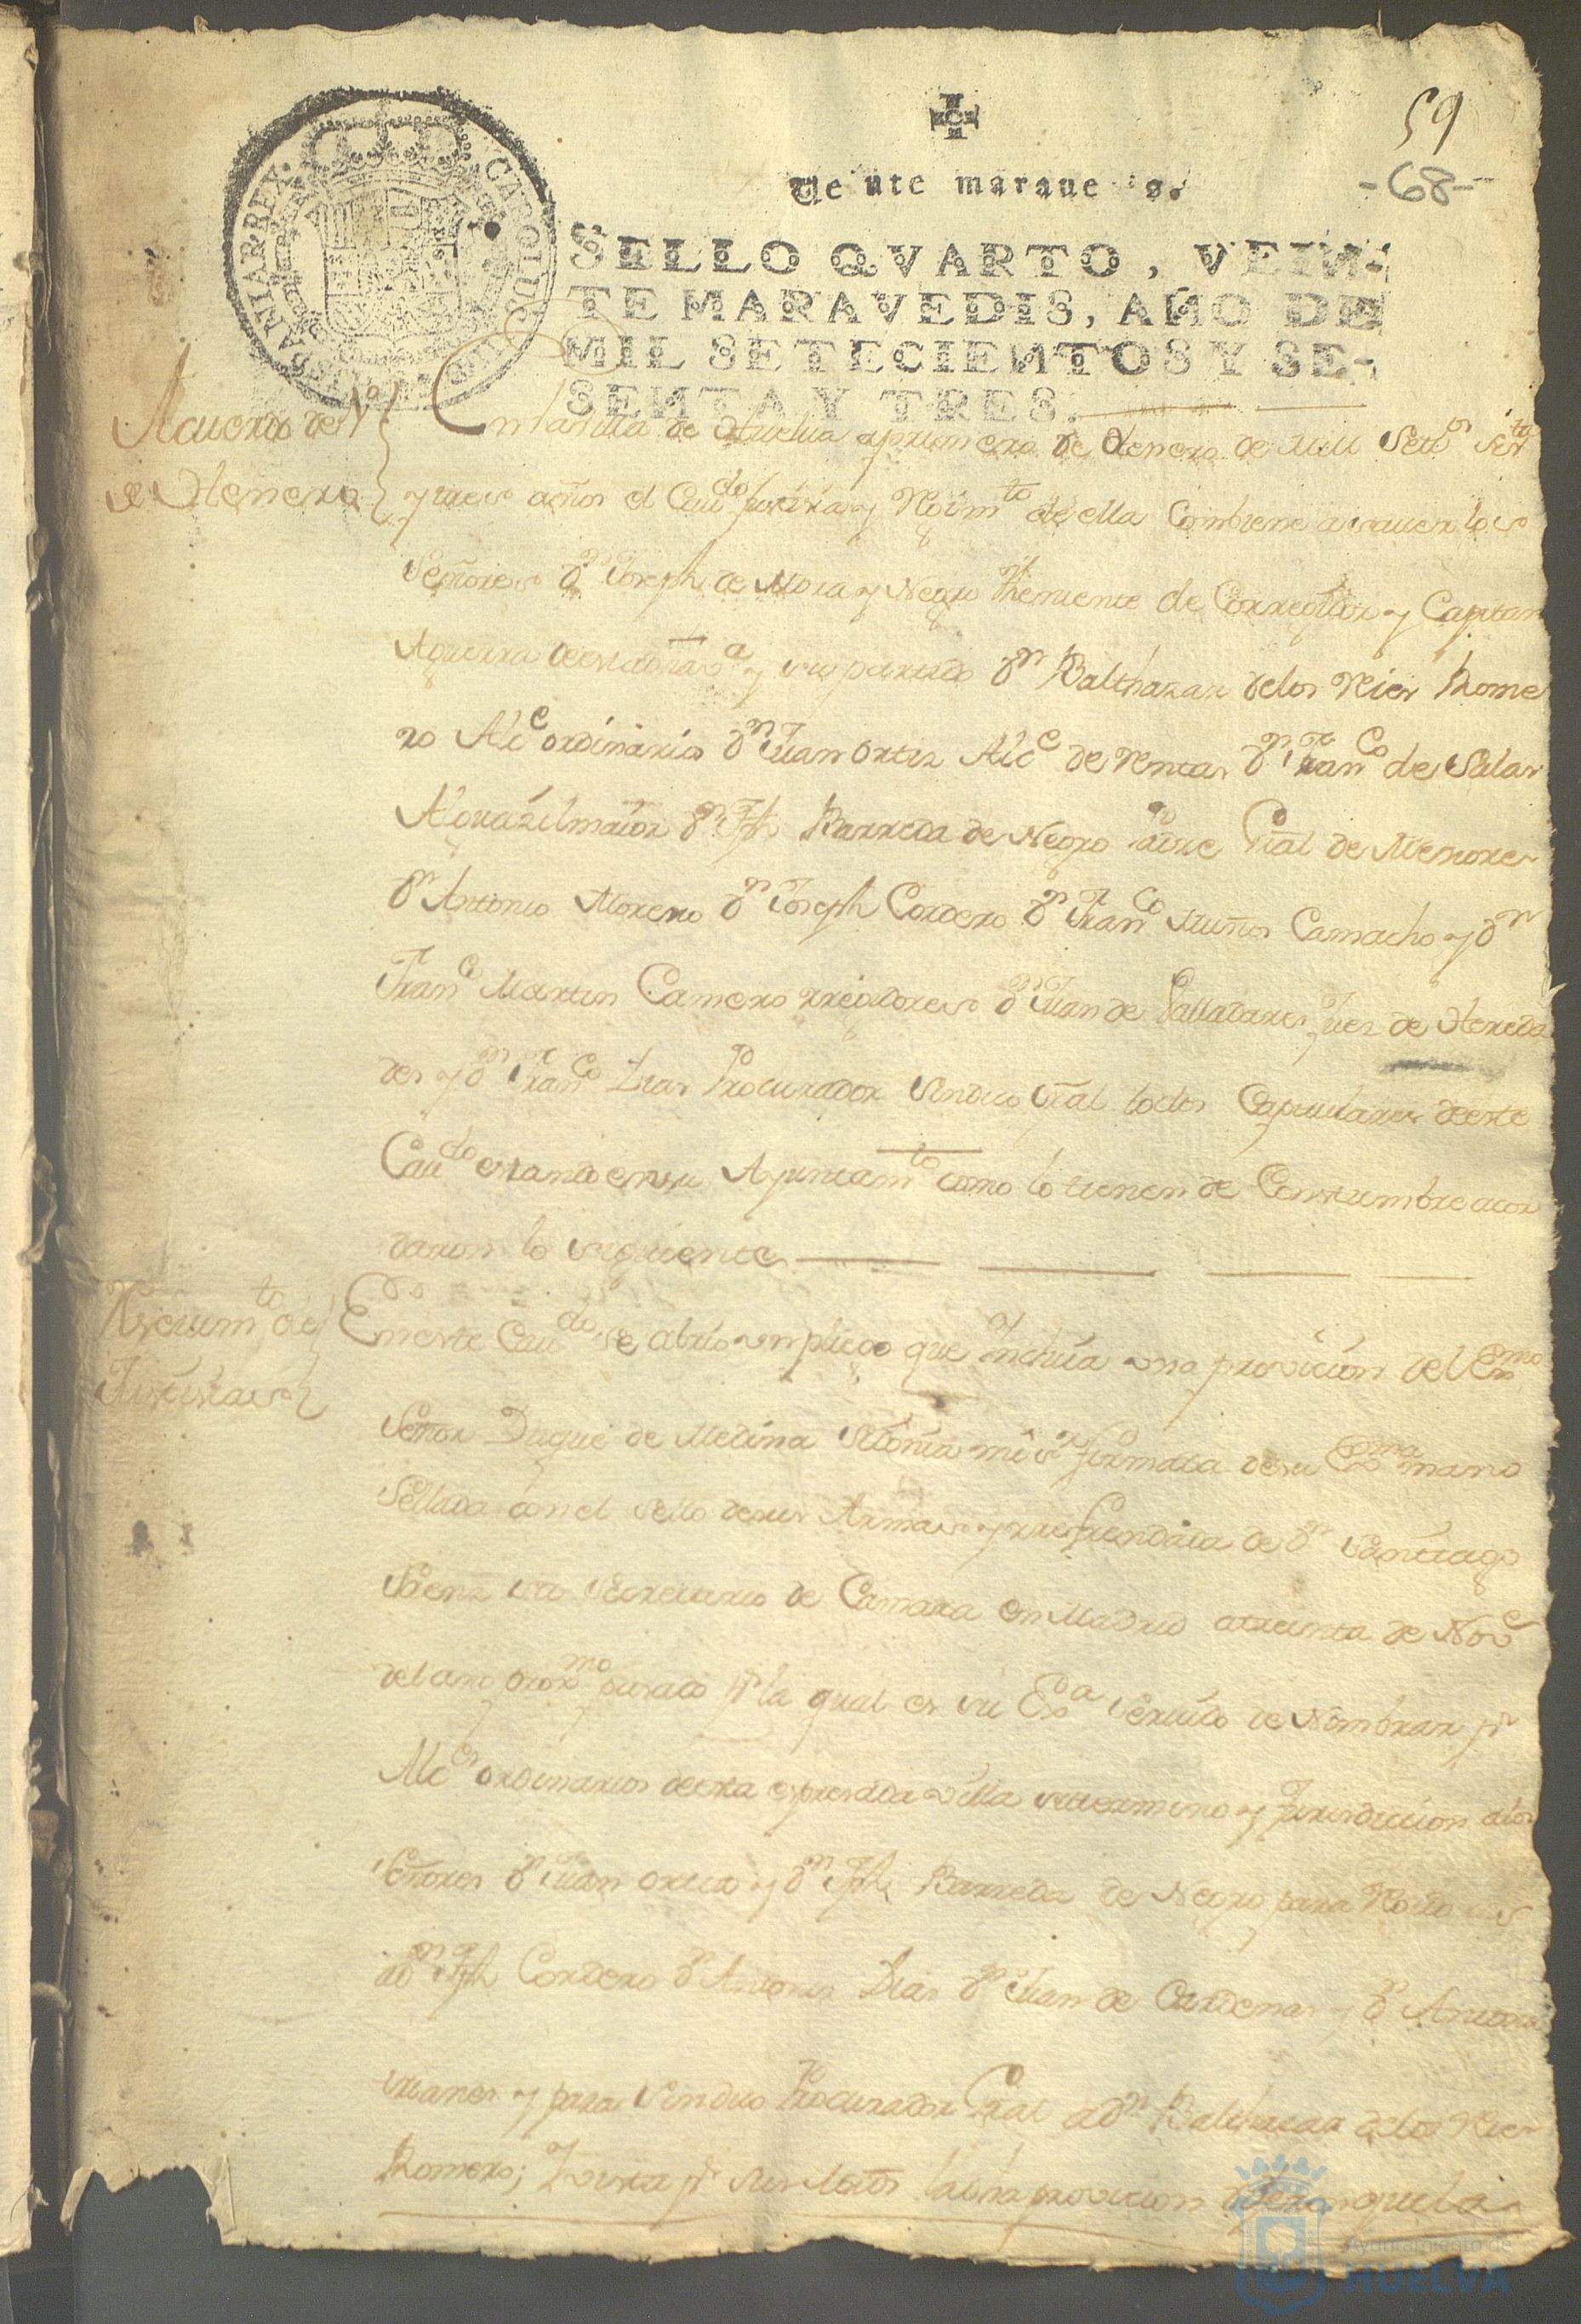 59
-68-
Veinte maravedis.
SELLO QVARTO, VEIN-
TE MARAVEDIS, AÑO DE
MIL SETECIENTOS Y SE-
SENTA Y TRES.
CAROLUS III HISPANIAR. REX.
Acuerdo de 1º
de Henero
En la villa de Huelva a primero de Henero de mill Settos sesta
y tres años el Cavdo Justizia y Reximto de ella Combiene a saver los
Señores Dn Joseph de Mora y Negro Theniente de Corregidor y Capitan
Aguerra de esta dha va y su partido Dn Balthazar de los Rios Rome
ro Alce ordinario Dn Juan Ortiz Alce de Rentas Dn Franco de Salas
Alguazil maior Dn Jph Barreda de Negro Padre Gral de Menores
Dn Antonio Moreno Dn Joseph Cordero Dn Franco Nuños Camacho y Dn
Franco Martin Camero rregidores Dn Juan de Valladares Juez de Hereda
des y Dn Franco Dias Procurador Sindico Gral todos Capitulares de este
Cavdo estando en su Ayuntamto como lo tienen de Constumbre acor
daron lo siguiente
Rsevimto de
Justizias
En este Cavdo se abrio un pliego que Incluia una provicion del Exmo
Señor Duque de Medina Sidonia mi sr firmada de su Exma mano
Sellada con el sello de sus Armas y rrefrendada de Dn Santiago
Saenz su Secretario de Camara en Madrid a treinta de Nove
del año proxmo pasado pr la qual es su Exa Servido de Nombrar pr
Alces ordinarios de esta expresada villa su termino y Jurisdiccion a los
Señores Dn Juan Ortiz y Dn Jph Barreda de Negro para Rexidores
a Dn Jph Cordero Dn Antonio Dias Dn Juan de Cardenas y Dn Antonio
y para Sindico Procurador Gral a Dn Balthazar de los Rios
Romero; Y vista pr Sus mds la dha provicion
Ayuntamiento de
HUELVA